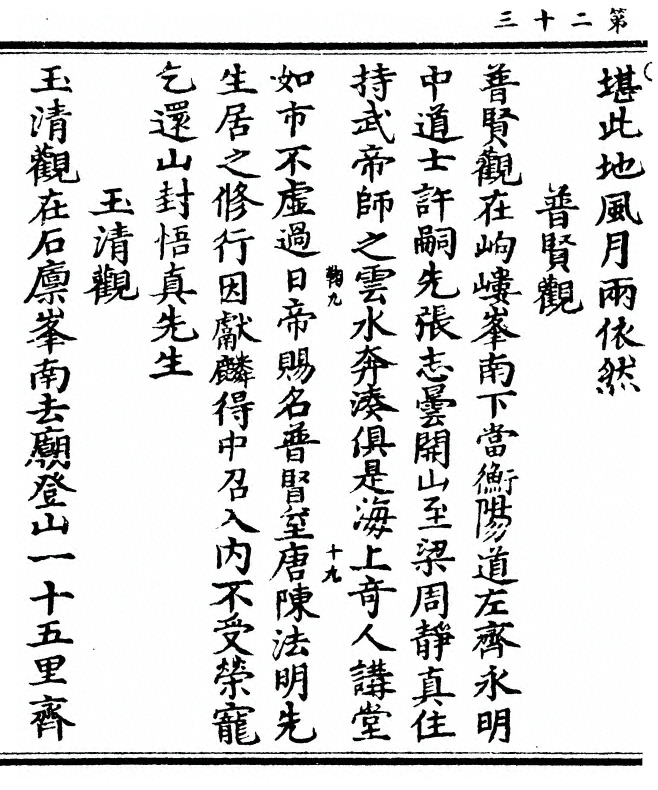 第二十三
堪此地風月兩依然
普賢觀
普賢觀在岣嶁峯南下當衡陽道左齊永明
中道士許嗣先張志曇開山至梁周靜真住
持武帝師之雲水奔湊俱是海上奇人講堂
鞠九
十九
如市不虛過日帝賜名普賢至唐陳法明先
生居之修行因獻麟得中召入內不受榮寵
乞還山封悟真先生
玉清觀
玉清觀在石廩峯南去廟登山一十五里齊